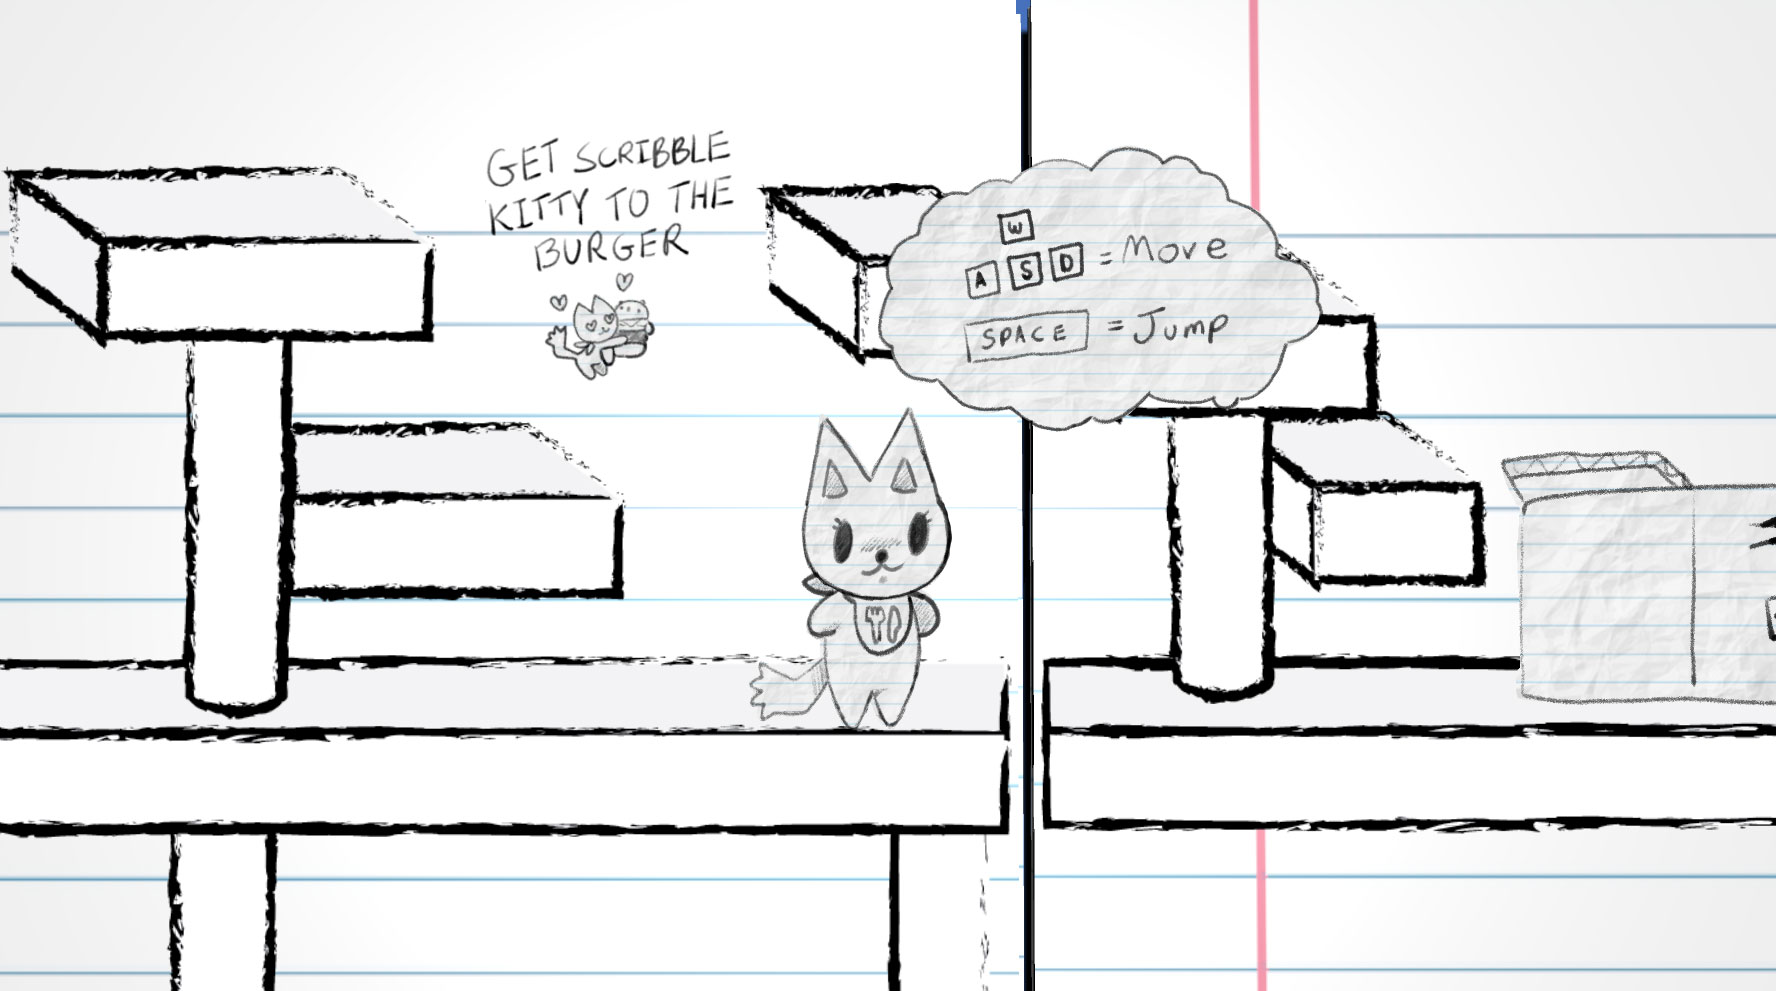 GET SCRIBBLE
KITTY TO THE
BURGER
W
A S D = Move
SPACE = Jump